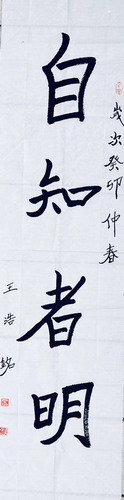 歲次癸卯仲春
自知者明
王浩銘